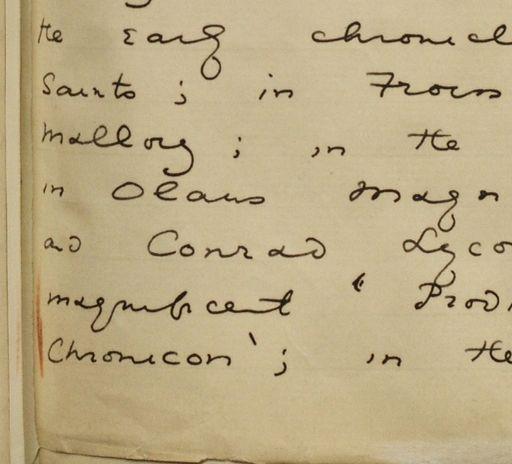 the Early chronicl
Saints ; in Frois
Mallory ; in the
in Olaus Magn
and Conrad Lyco
magnificent "Prod
Chronicon' ; in the